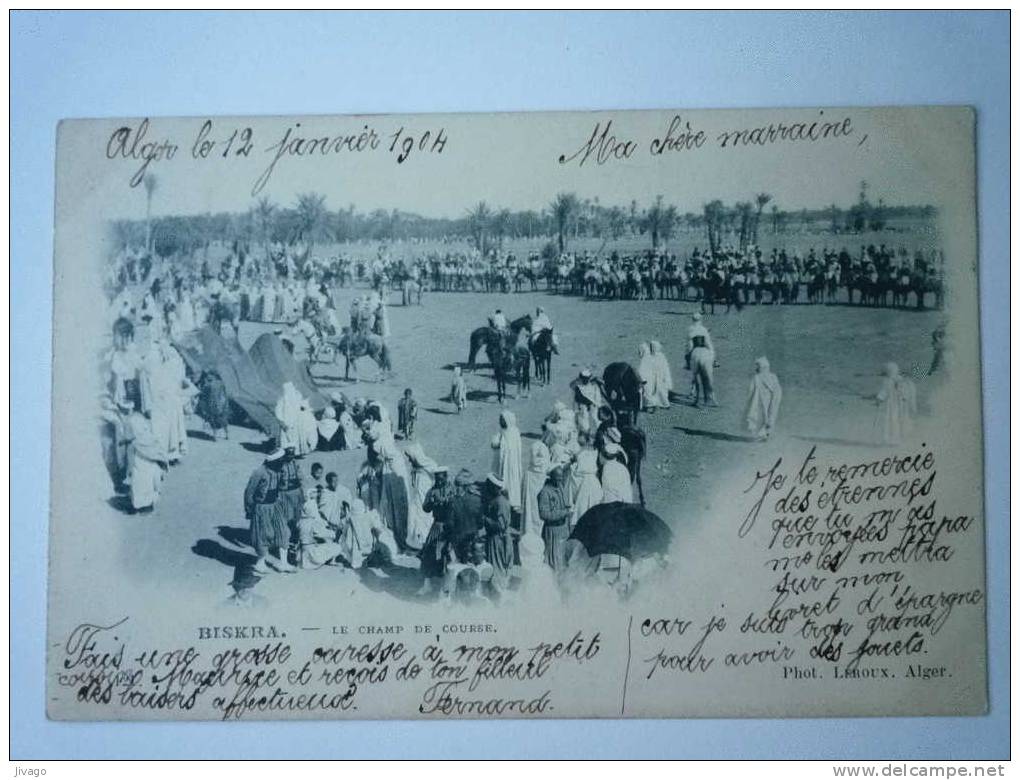 Alger le 12 janvier 1904
Ma chère marraine,
Je te remercie
des étrennes
que tu m'as
envoyées papa
me les mettra
sur mon
livret d'épargne
car je suis trop grand
pour avoir des jouets.
BISKRA. — LE CHAMP DE COURSE.
Fais une grosse caresse à mon petit
cousin Maurice et reçois de ton filleul
des baisers affectueux.
Fernand.
Phot. LEROUX. Alger.
jivago
www.delcampe.net